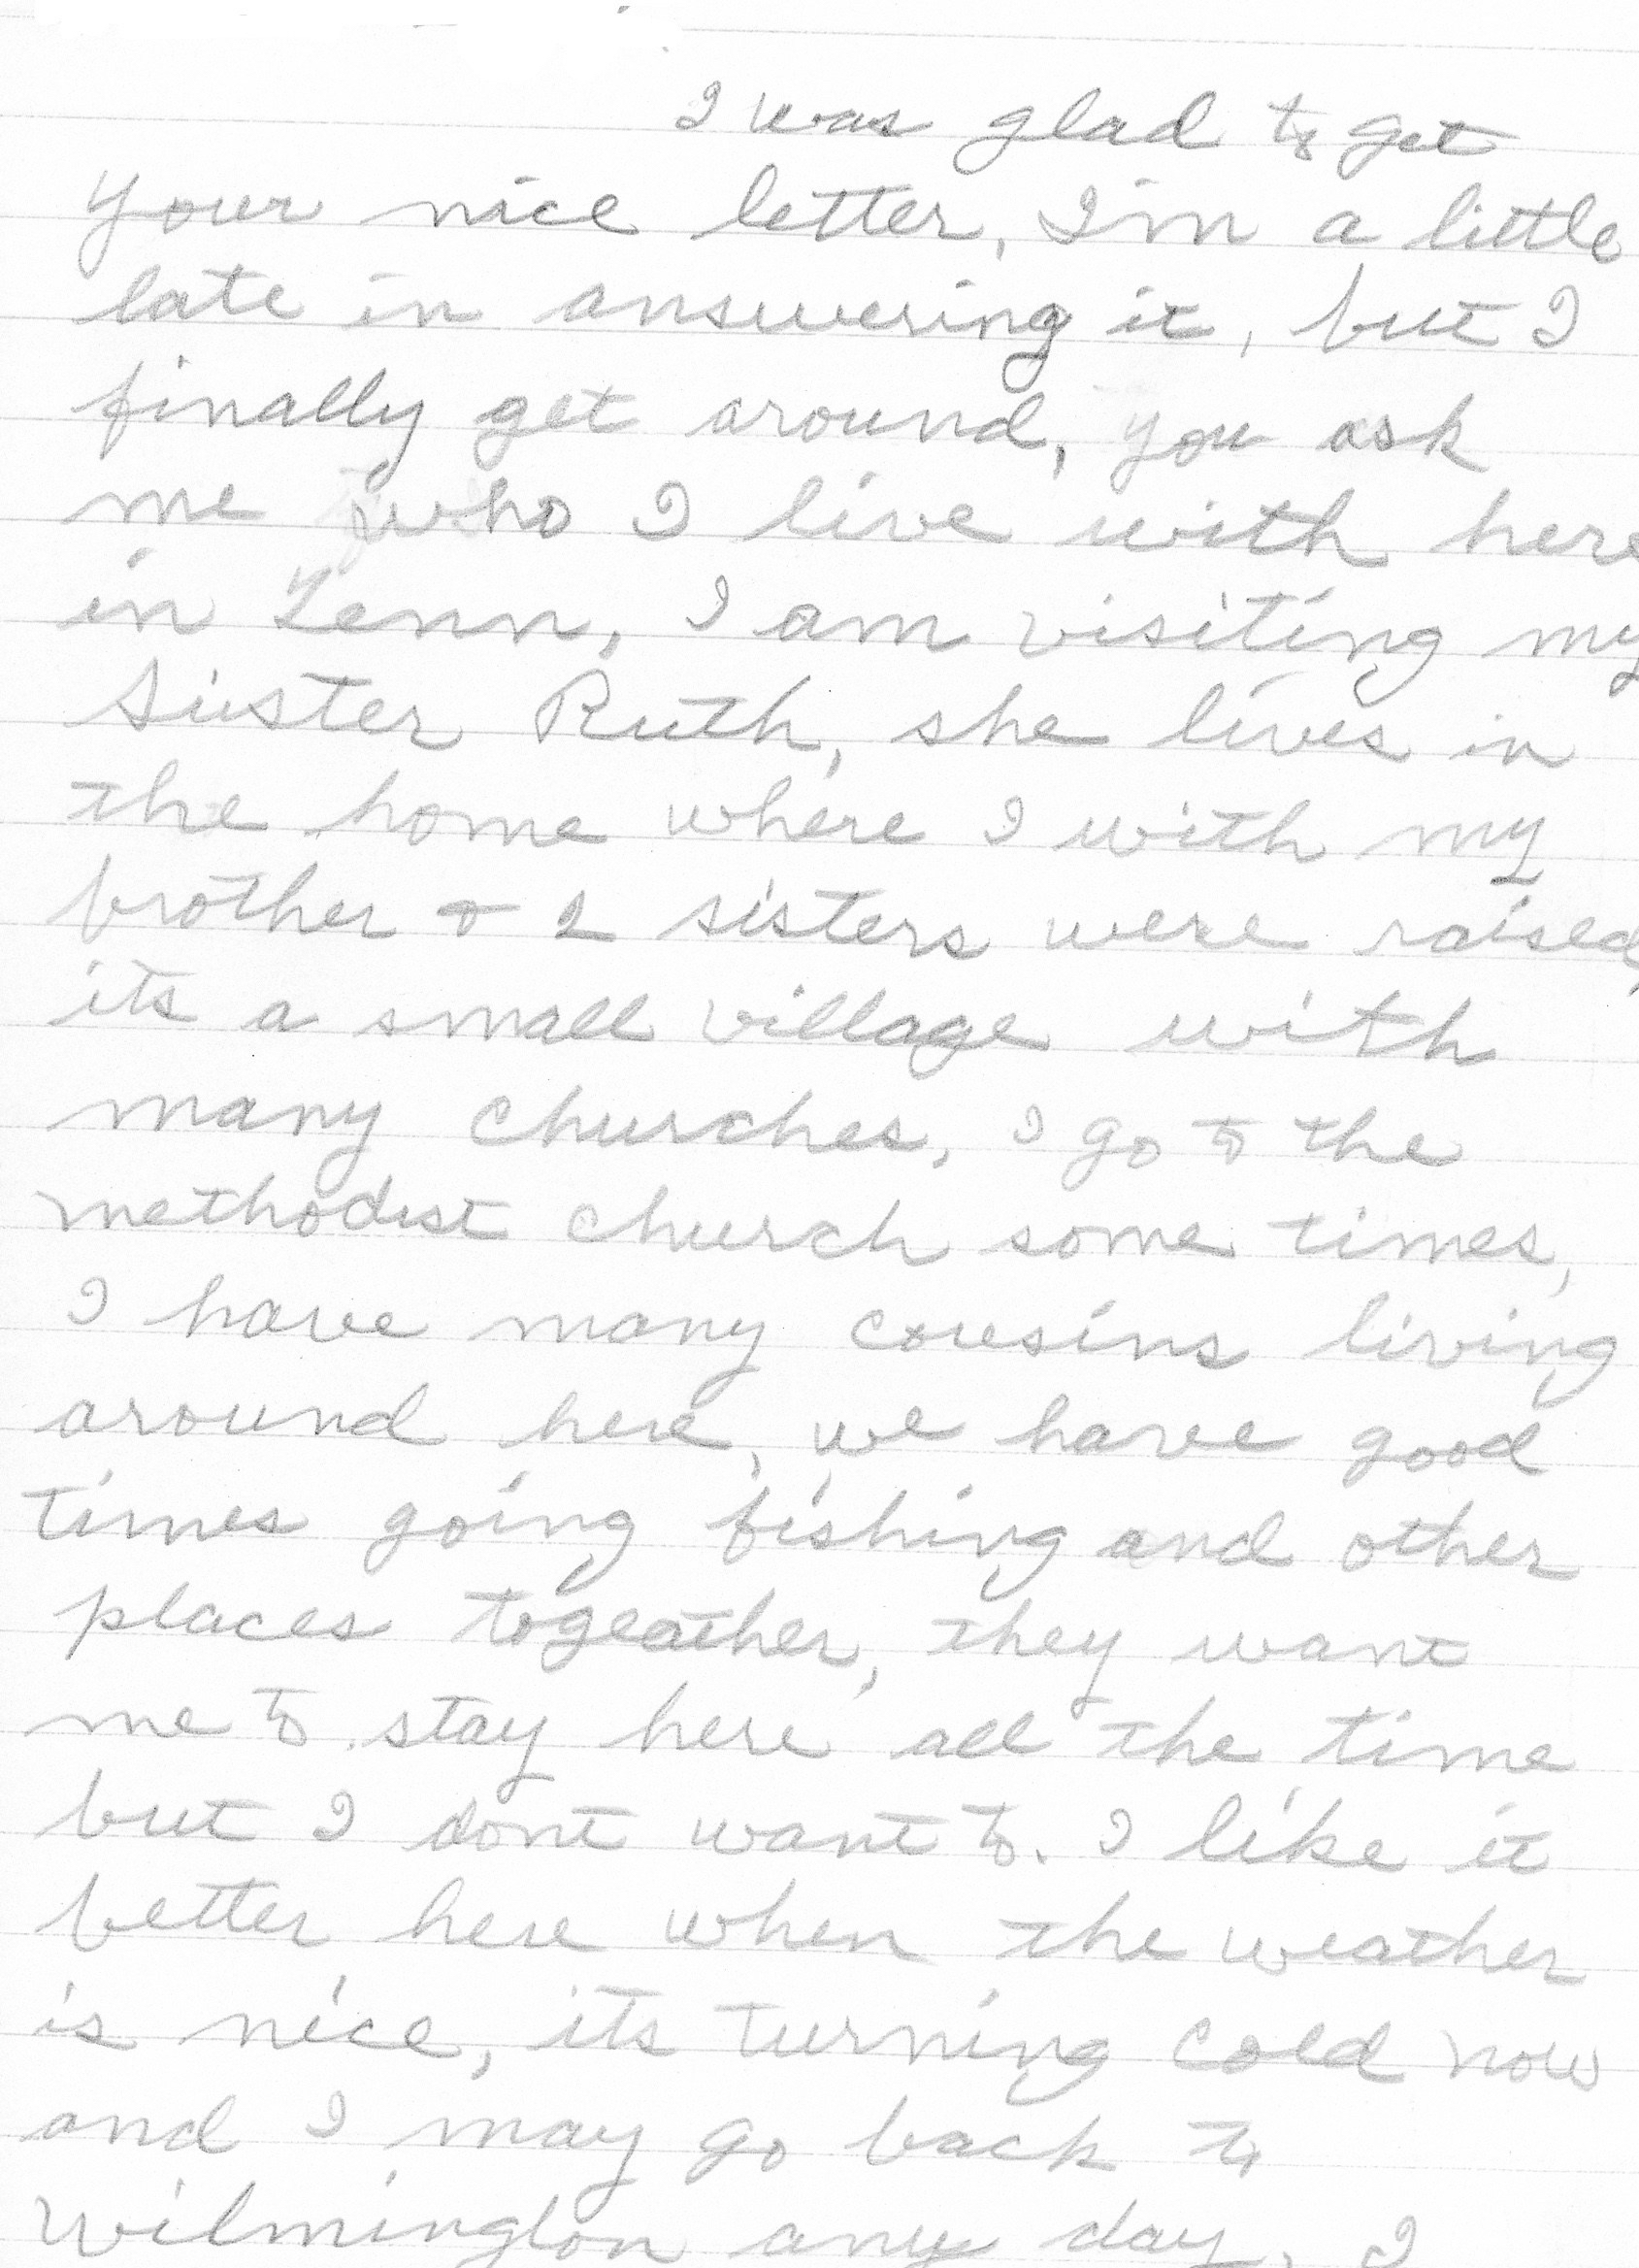 I was glad to get
your nice letter, I'm a little
late in answering it, but I
finally get around, you ask
me who I live with here
in Tenn, I am visiting my
sister Ruth, she lives in
the home where I with my
brother & 2 sisters were raised,
its a small village with
many churches, I go to the
methodist church some times,
I have many cousins living
around here, we have good
times going fishing and other
places togeather, they want
me to stay here all the time
but I dont want to. I like it
better here when the weather
is nice, its turning cold now
and I may go back to
Wilmington any day, I